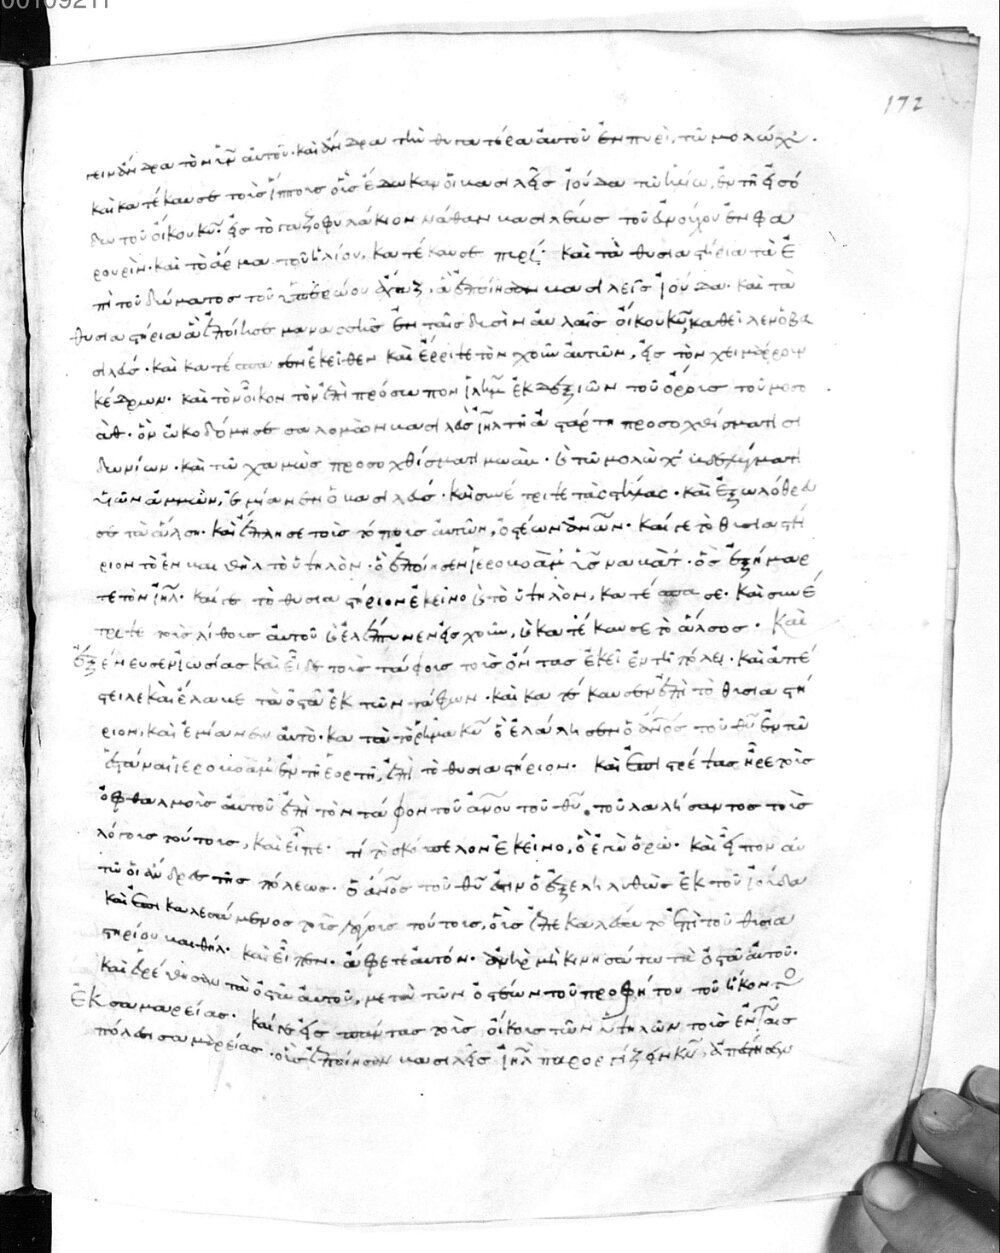 00109211
172
πειν ἄνδρα τὸν υἱὸν αὐτοῦ· καὶ ἄνδρα τὴν θυγατέρα αὐτοῦ ἐν πυρὶ, τῶ μολώχ.
καὶ κατέκαυσε τοὺς ἵππους οὓς ἔδωκαν οἱ βασιλεῖς ἰούδα τῶ ἡλίω, ἐν τῆ εἰσό
δω τοῦ οἴκου κυ̅· εἰς τὸ γαζοφυλάκιον νάθαν βασιλέως τοῦ εὐνούχου ἐν φα
ρουρὶμ· καὶ τὸ ἅρμα τοῦ ἡλίου, κατέκαυσε πυρί· καὶ τὰ θυσιαστήρια τὰ ἐ
πὶ τοῦ δώματος τοῦ ὑπερώου ἄχαζ, ἃ ἐποίησαν βασιλεῖς ἰούδα· καὶ τὰ
θυσιαστήρια ἃ ἐποίησε μανασσῆς ἐν ταῖς δυσὶν αὐλαῖς οἴκου κυ̅, καθεῖλεν ὁ βα
σιλεύς· καὶ κατέσπασεν ἐκεῖθεν καὶ ἔρριψε τὸν χοῦν αὐτῶν, εἰς τὸν χειμάρρουν
κέδρων· καὶ τὸν οἶκον τὸν ἐπὶ πρόσωπον ἰλημ̅ ἐκ δεξιῶν τοῦ ὄρους τοῦ μοσο
ὰθ· ὃν ὠκοδόμησε σαλομὼν βασιλεὺς ἰηλ̅ τῆ ἀστάρτη προσοχθίσματι σι
δωνίων· καὶ τῶ χαμὼς προσοχθίσματι μωὰβ· καὶ τῶ μολὼχ βδελύγματι
υἱῶν ἀμμὼν, ἐμίανεν ὁ βασιλεύς· καὶ συνέτριψε τὰς στήλας· καὶ ἐξωλόθρευ
σε τὰ ἄλση· καὶ ἔπλησε τοὺς τόπους αὐτῶν, ὀστέων ἀνων̅· καί γε τὸ θυσιαστή
ριον τὸ ἐν βαιθὴλ τὸ ὑψηλὸν· ὃ ἐποίησεν ἱεροβοὰμ υἱὸς ναβὰτ· ὃς ἐξήμαρ
τε τὸν ἰηλ̅· καί γε τὸ θυσιαστήριον ἐκεῖνο καὶ τὸ ὑψηλὸν, κατέσπασε· καὶ συνέ
τριψε τοὺς λίθους αὐτοῦ καὶ ἐλέπτυνεν εἰς χοῦν, καὶ κατέκαυσε τὸ ἄλσος· Καὶ
ἐξένευσεν ἰωσίας καὶ εἶδε τοὺς τάφους τοὺς ὄντας ἐκεῖ ἐν τῆ πόλει· καὶ ἀπέ
στειλε καὶ ἔλαβε τὰ ὀστᾶ ἐκ τῶν τάφων· καὶ κατέκαυσεν ἐπὶ τὸ θυσιαστή
ριον, καὶ ἐμίανεν αὐτὸ· κατὰ τὸ ῥῆμα κυ̅ ὃ ἐλάλησεν ὁ ἀνος̅ τοῦ θυ̅ ἐν τῶ
ἑστάναι ἱεροβοὰμ ἐν τῆ ἑορτῆ, ἐπὶ τὸ θυσιαστήριον· καὶ ἐπιστρέψας ἦρε τοὺς
ὀφθαλμοὺς αὐτοῦ ἐπὶ τὸν τάφον τοῦ ἀνου̅ τοῦ θυ̅, τοῦ λαλήσαντος τοὺς
λόγους τούτους, καὶ εἶπε· τί τὸ σκόπελον ἐκεῖνο, ὃ ἐγὼ ὁρῶ· καὶ εἶπον αὐ
τῶ οἱ ἄνδρες τῆς πόλεως· ὁ ἀνος̅ τοῦ θυ̅ ἐστιν ὁ ἐξεληλυθὼς ἐκ τοῦ ἰούδα
καὶ ἐπικαλεσάμενος τοὺς λόγους τούτους, οὓς ἐπεκαλέσατο ἐπὶ τοῦ θυσια
στηρίου βαιθήλ· καὶ εἶπεν· ἄφετε αὐτόν· ἀνὴρ μὴ κινησάτω τὰ ὀστᾶ αὐτοῦ·
καὶ εὑρέθησαν τὰ ὀστᾶ αὐτοῦ, μετὰ τῶν ὀστέων τοῦ προφήτου τοῦ ἥκοντος
ἐκ σαμαρείας· καί γε εἰς πάντας τοὺς οἴκους τῶν ὑψηλῶν τοὺς ἐν ταῖς
πόλεσι σαμαρείας· οὓς ἐποίησαν βασιλεῖς ἰηλ̅ παροργίζειν κυ̅, ἀπέστησεν